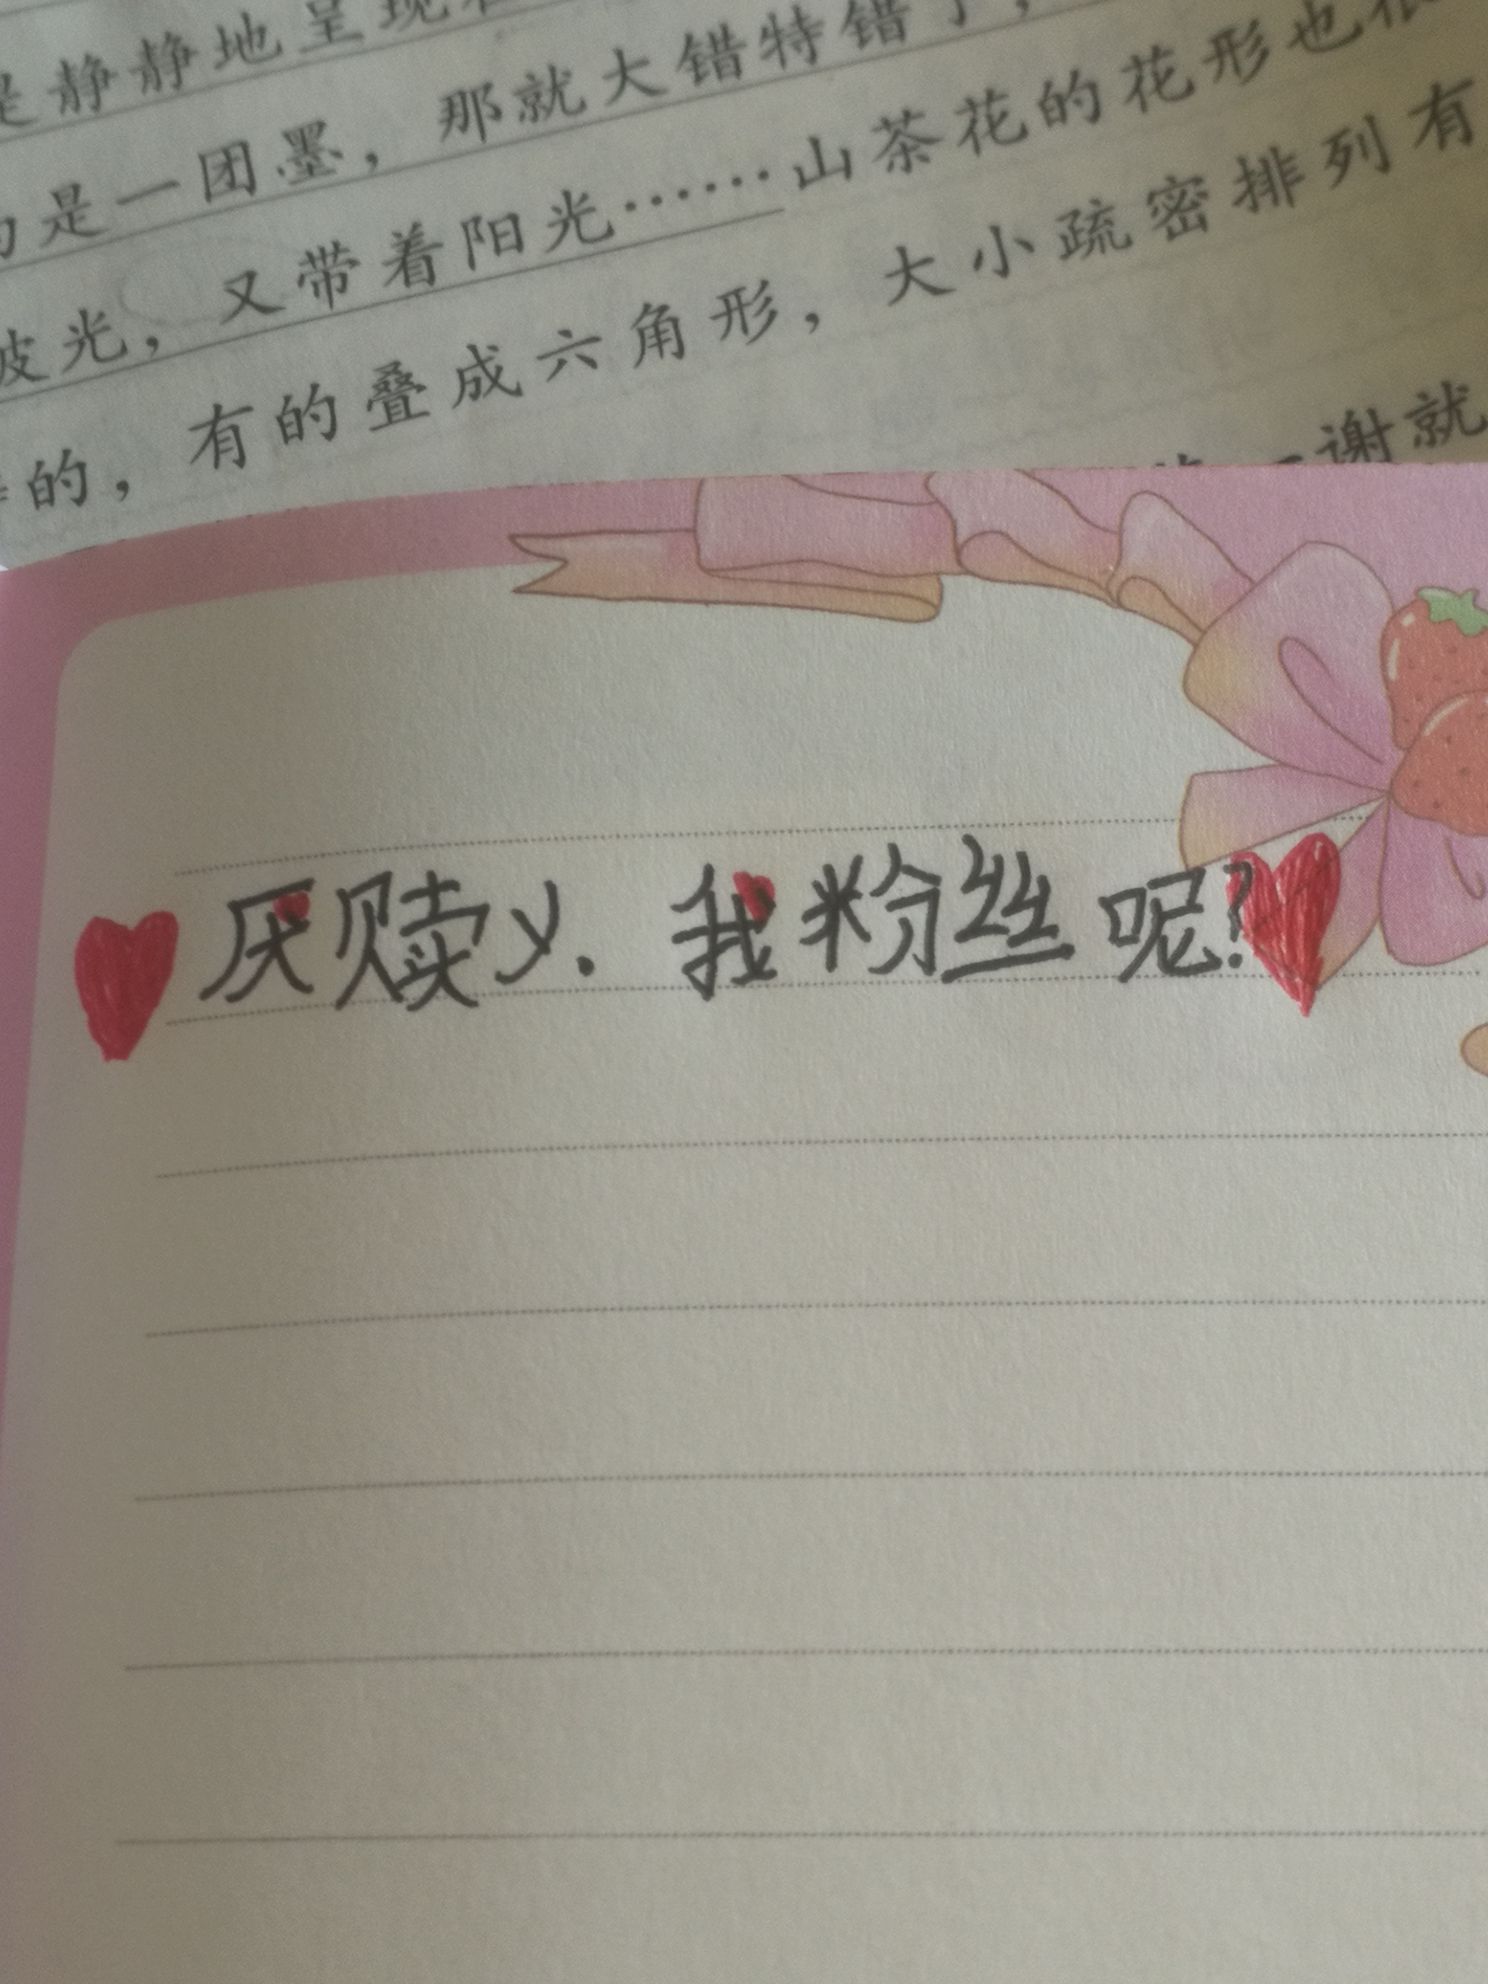 是静静地呈现着
的是一团墨，那就大错特错了，
波光，又带着阳光……山茶花的花形也很
的，有的叠成六角形，大小疏密排列有
谢就
厌赎y. 我粉丝呢?